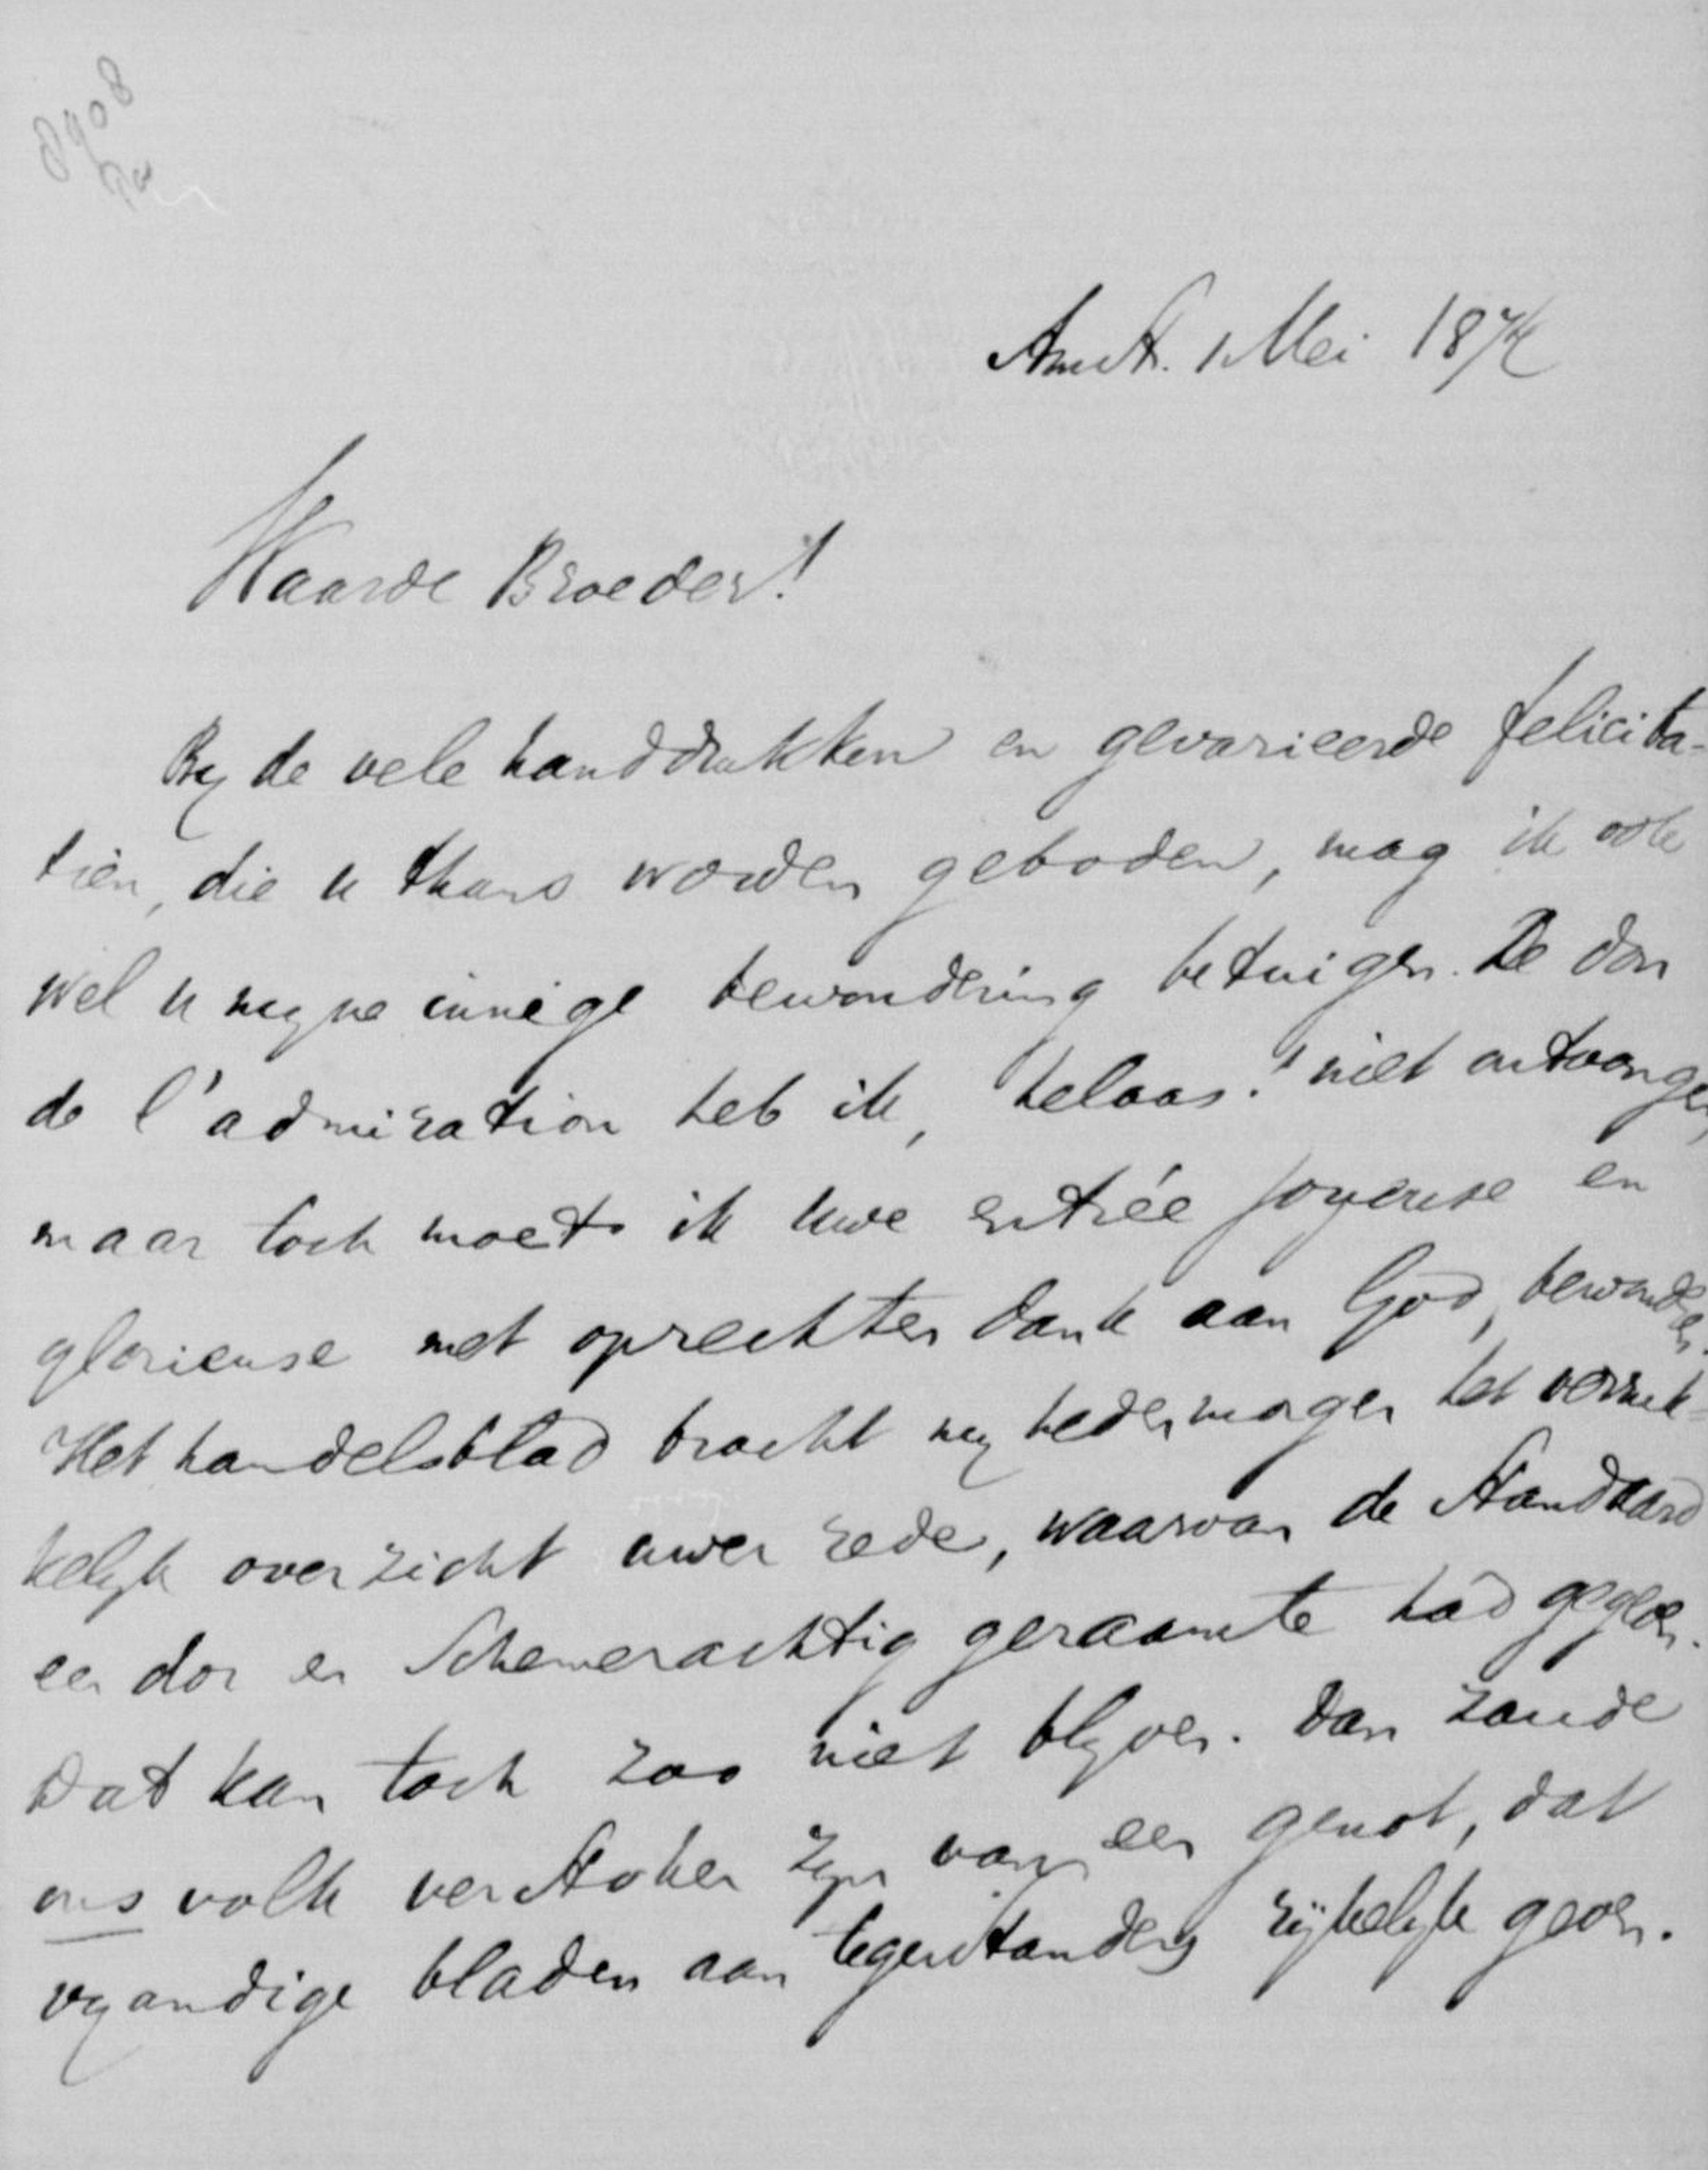 8908
Amst. 1 Mei 1874
Waarde Broeder!
By de vele handdrukken en gevarieerde felicita-
tiën, die u thans worden geboden, mag ik ook
wel u myne innige bewondering betuigen. Le don
de l'admiration heb ik, helaas! niet ontvangen,
maar toch moet ik uwe entrée joyeuse en
glorieuse met oprechten dank aan God, bewonderen.
Het handelsblad bracht my hedenmorgen het verruk-
kelyk overzicht uwer rede, waarvan de Standaard
een dor en schemerachtig geraamte had gegeven.
Dat kan toch zoo niet blyven. Dan zoude
ons volk verstoken zyn van een genot, dat
vyandige bladen aan tegenstanders rijkelyk geven.